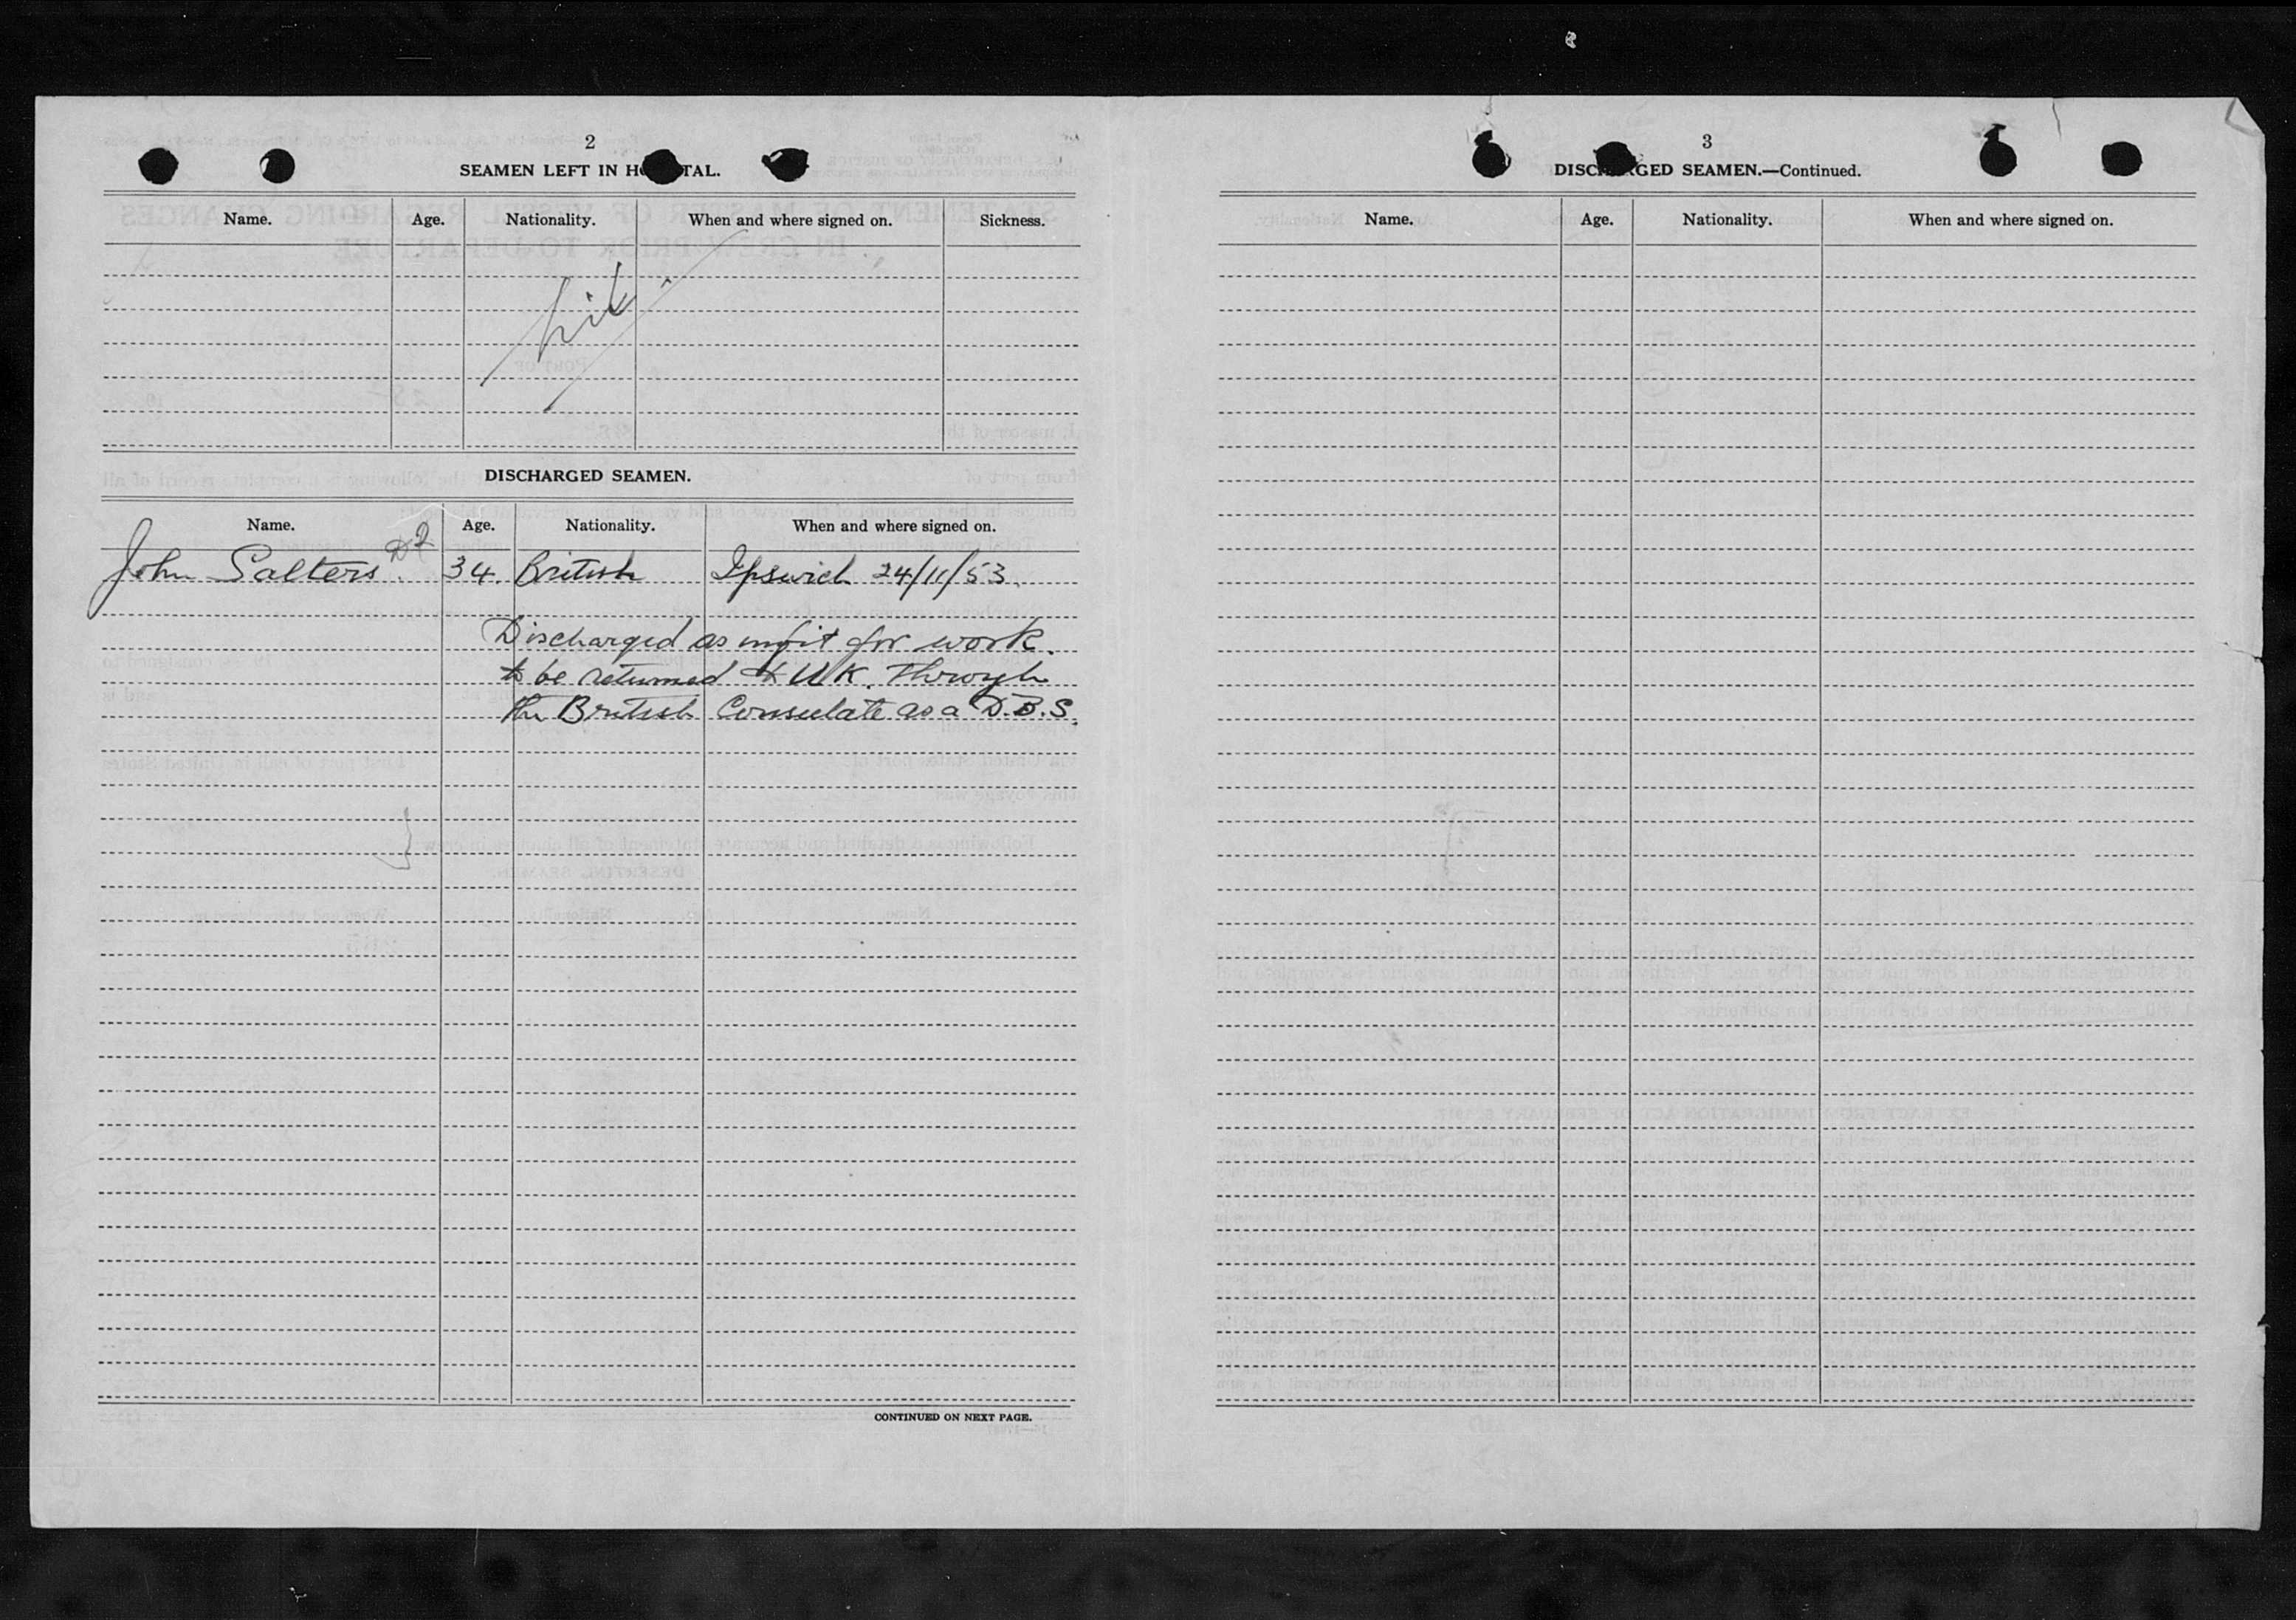 2
SEAMEN LEFT IN HOSPITAL.
Name. Age. Nationality. When and where signed on. Sickness.
Nil
DISCHARGED SEAMEN.
Name. Age. Nationality. When and where signed on.
John Salters. D2 34. British Ipswich 24/11/53.
Discharged as unfit for work.
to be returned to U.K. through
the British Consulate as a D.B.S.
CONTINUED ON NEXT PAGE.
3
DISCHARGED SEAMEN.—Continued.
Name. Age. Nationality. When and where signed on.